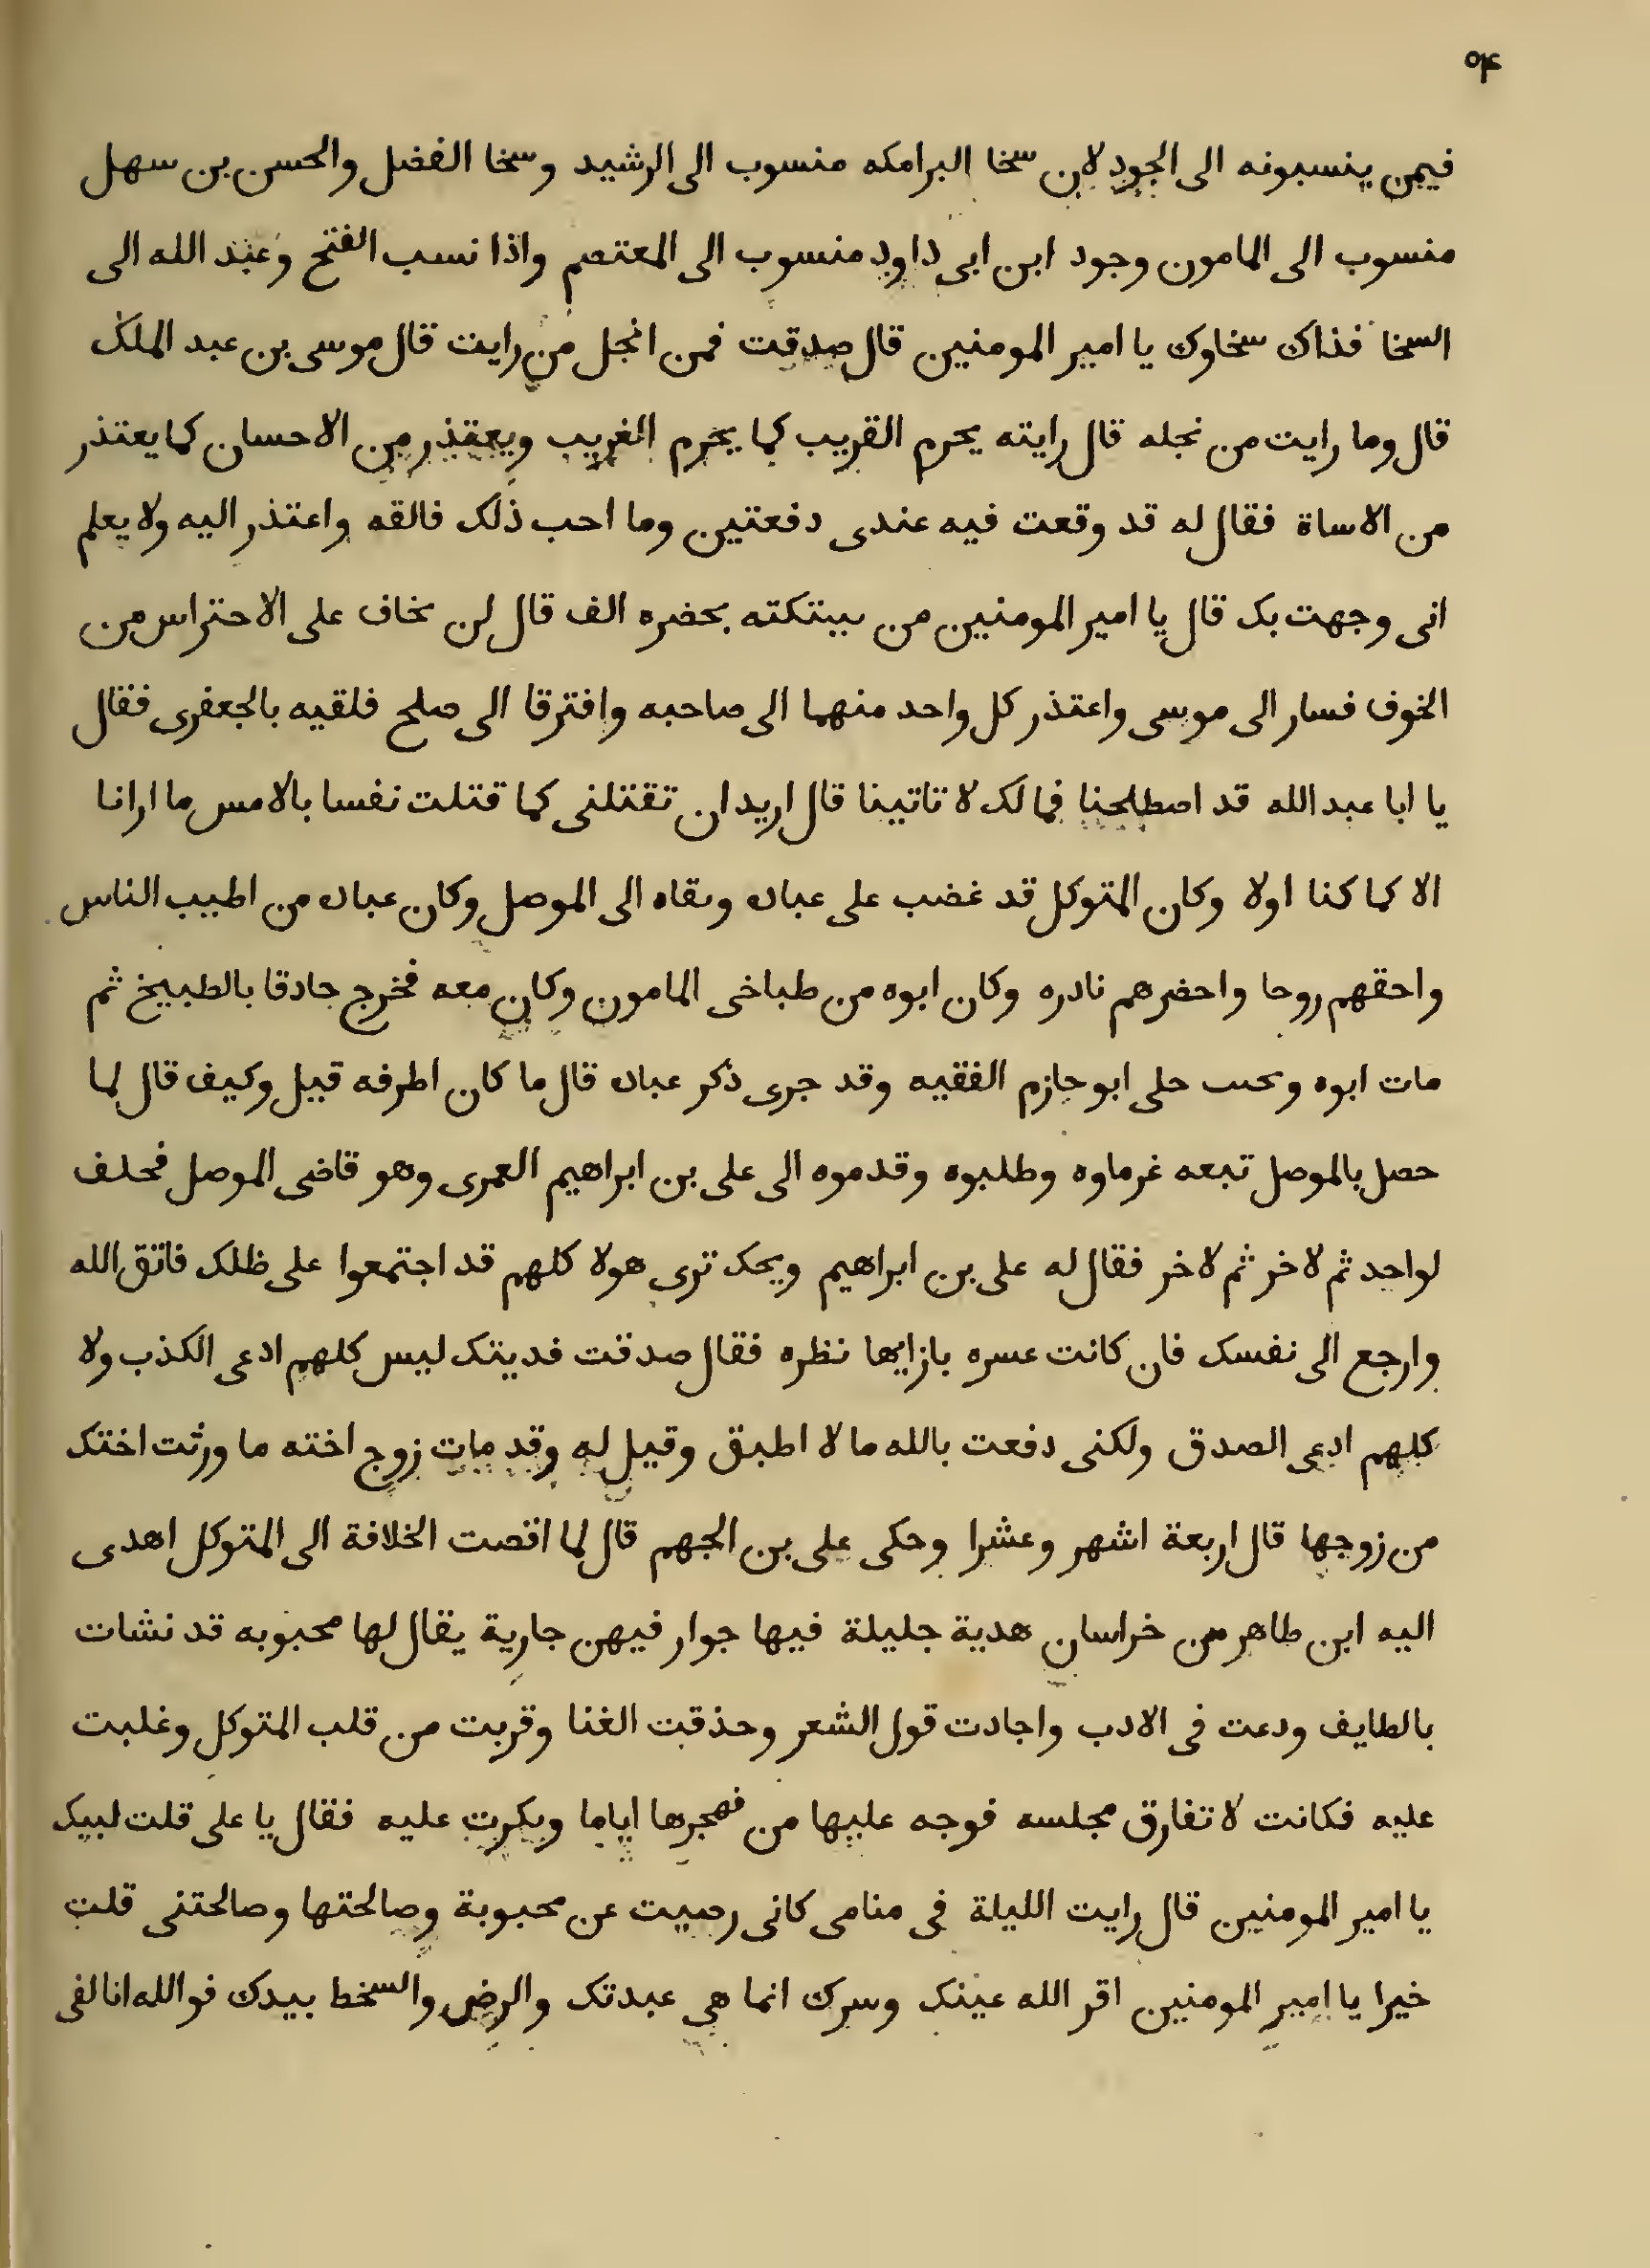 ٥٤
فيمن ينسبونه الى الجود لان سخا البرامكه منسوب الى الرشيد وسخا الفضل والحسن بن سهل
منسوب الى المامون وجود ابن ابى داود منسوب الى المعتصم واذا نسب الفتح وعبد الله الى
السخا فذاك سخاوك يا امير المومنين قال صدقت فمن انجل من رايت قال موسى بن عبد الملك
قال وما رايت من نجله قال رايته يحرم القريب كما يحرم الغريب ويعقذر من الاحسان كما يعتذر
من الاساة فقال له قد وقعت فيه عندى دفعتين وما احب ذلك فالقه واعتذر اليه ولا يعلم
انى وجهت بك قال يا امير المومنين من يبتكته بحضره الف قال لن نخاف على الاحتراس من
الخوف فسار الى موسى واعتذر كل واحد منهما الى صاحبه وافترقا الى صلح فلقيه بالجعفرى فقال
يا ابا عبد الله قد اصطلحنا فمالك لا تاتينا قال اريد ان تقتلنى كما قتلت نفسا بالامس ما ارانا
الا كما كنا اولا وكان المتوكل قد غضب على عباده ونفاه الى الموصل وكان عباده من اطيب الناس
واحقهم روحا واحضرهم نادره وكان ابوه من طباخى المامون وكان معه فخرج حادقا بالطبيخ ثم
مات ابوه حلى ابو حازم الفقيه وقد جرى ذكر عباده قال ما كان اطرفه قيل وكيف قال لما
حصل بالموصل تبعه غرماوه وطلبوه وقدموه الى على بن ابراهيم العمرى وهو قاضى الموصل فحلف
لواحد ثم لاخر ثم لاخر فقال له على بن ابراهيم ويحك ترى هولا كلهم قد اجتمعوا على ظلك فاتق الله
وارجع الى نفسك فان كانت عسره بازايها نظره فقال صدقت فديتك ليس كلهم ادعى الكذب ولا
كلهم ادعى الصدق ولكنى دفعت بالله ما لا اطيق وقيل له وقد مات زوج اخته ما ورثت اختك
من زوجها قال اربعة اشهر وعشرا وحكى على بن الجهم قال لما افصت الخلافة الى المتوكل اهدى
اليه ابن طاهر من خراسان هدية جليلة فيها جوار فيهن جارية يقال لها محبوبه قد نشات
بالطايف ودعت فى الادب واجادت قول الشعر وحذقت الغنا وقربت من قلب المتوكل وغلبت
عليه فكانت لا تفارق مجلسه فوجه عليها من فهجرها اياما وبكرت عليه فقال يا على قلت لبيك
يا امير المومنين قال رايت الليلة فى منامى كانى رصيت عن محبوبة وصالحتها وصالحتنى قلت
خيرا يا امير المومنين اقر الله عينك وسرك انما هى عبدتك والرضى والسخط بيدك فوالله انا لفى